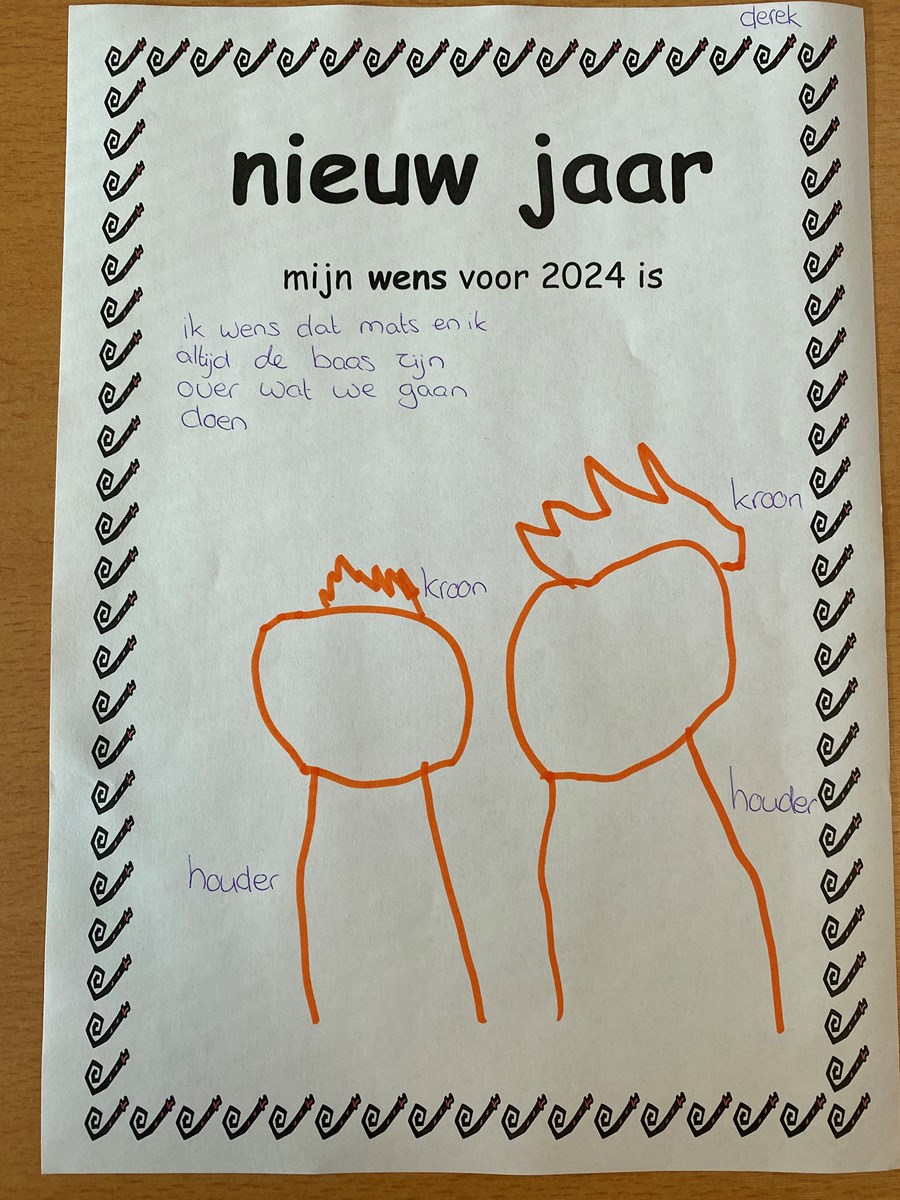 derek
nieuw jaar
mijn wens voor 2024 is
ik wens dat mats en ik
altijd de baas zijn
over wat we gaan
doen
kroon
kroon
houder
houder